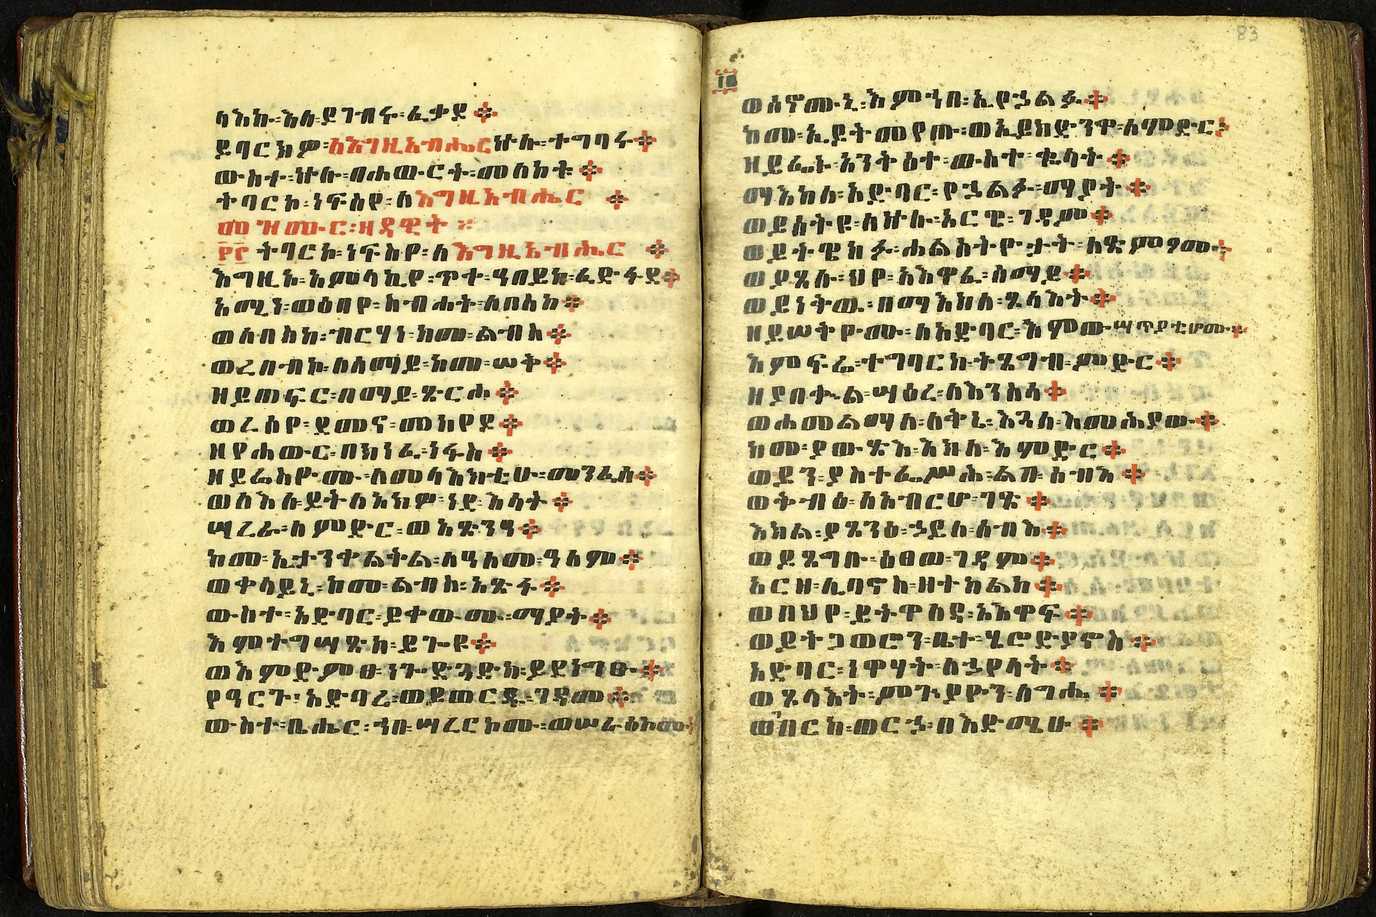 ላእኩ፡እለ፡ይገብሩ፡ፈቃዶ
ይባርክዎ፡ለእግዚአብሔር፡ኵሉ፡ተግባሩ
ውስተ፡ኵሉ፡በሐውርት፡መለከቱ
ትባርኮ፡ነፍስየ፡ለእግዚአብሔር
መዝሙር፡ዘዳዊት
፻፫ ትባርኮ፡ነፍስየ፡ለእግዚአብሔር
እግዚኦ፡አምላኪየ፡ጥቀ፡ዓበይከ፡ፈድፋደ
አሚነ፡ወዕበየ፡ስብሐት፡ለበስከ
ወለበስከ፡ብርሃነ፡ከመ፡ልብስ
ወረበብኮ፡ለሰማይ፡ከመ፡ሠቅ
ዘይጠፍር፡በማይ፡ጽርሖ
ወረሰየ፡ደመና፡መከየዶ
ዘየሐውር፡በክነፈ፡ነፋስ
ዘይሬስዮሙ፡ለመላእክቲሁ፡መንፈሰ
ወለእለ፡ይትለአክዎ፡ነደ፡እሳት
ሣረራ፡ለምድር፡ወአጽንዓ
ከመ፡ኢታንቀልቅል፡ለዓለመ፡ዓለም
ወቀላይኒ፡ከመ፡ልብስ፡አጽፋ
ውስተ፡አድባር፡ይቀውሙ፡ማያት
እምተግሣጽከ፡ይጐዩ
ወእምድምፀ፡ነጐድጓድከ፡ይደነግፁ
የዓርጉ፡አድባረ፡ወይወርዱ፡ገዳመ
ውስተ፡ብሔር፡ኀበ፡ሣረርኮሙ፡ወሠራዕኮሙ
፲፱
ወሰኖሙኒ፡እምኀበ፡ኢየኃልፉ
ከመ፡ኢይትመየጡ፡ወኢይክድንዋ፡ለምድር
ዘይፌኑ፡አንቅዕተ፡ውስተ፡ቈላት
ማእከለ፡አድባር፡የኃልፉ፡ማያት
ወይሰትዩ፡ለኵሉ፡አርዌ፡ገዳም
ወይትዌከፉ፡ሐለስትዮታት፡ለጽምዖሙ
ወይጼሉ፡ህየ፡አእዋፈ፡ሰማይ
ወይነትዉ፡በማእከለ፡ጸላእት
ዘይሠቅዮሙ፡ለአድባር፡እምውሣጥያቲሆሙ
እምፍሬ፡ተግባርከ፡ትጸግብ፡ምድር
ዘያበቍል፡ሣዕረ፡ለእንስሳ
ወሐመልማለ፡ለቅኔ፡እጓለ፡እመሕያው
ከመ፡ያውጽእ፡እክለ፡እምድር
ወይን፡ያስተፌሥሕ፡ልበ፡ሰብእ
ወቅብዕ፡ለአብርሆ፡ገጽ
እክል፡ያጸንዕ፡ኃይለ፡ሰብእ
ወይጸግቡ፡ዕፀወ፡ገዳም
አርዘ፡ሊባኖስ፡ዘተከልከ
ወበህየ፡ይትዋለዳ፡አእዋፍ
ወይትጋወሮን፡ቤተ፡ሄሮድያኖስ
አድባር፡ነዋኃት፡ለኃየላት
ወጸላእት፡ምጕያዮን፡ለግሔ
ወገበርከ፡ወርኃ፡በዕድሜሁ
83